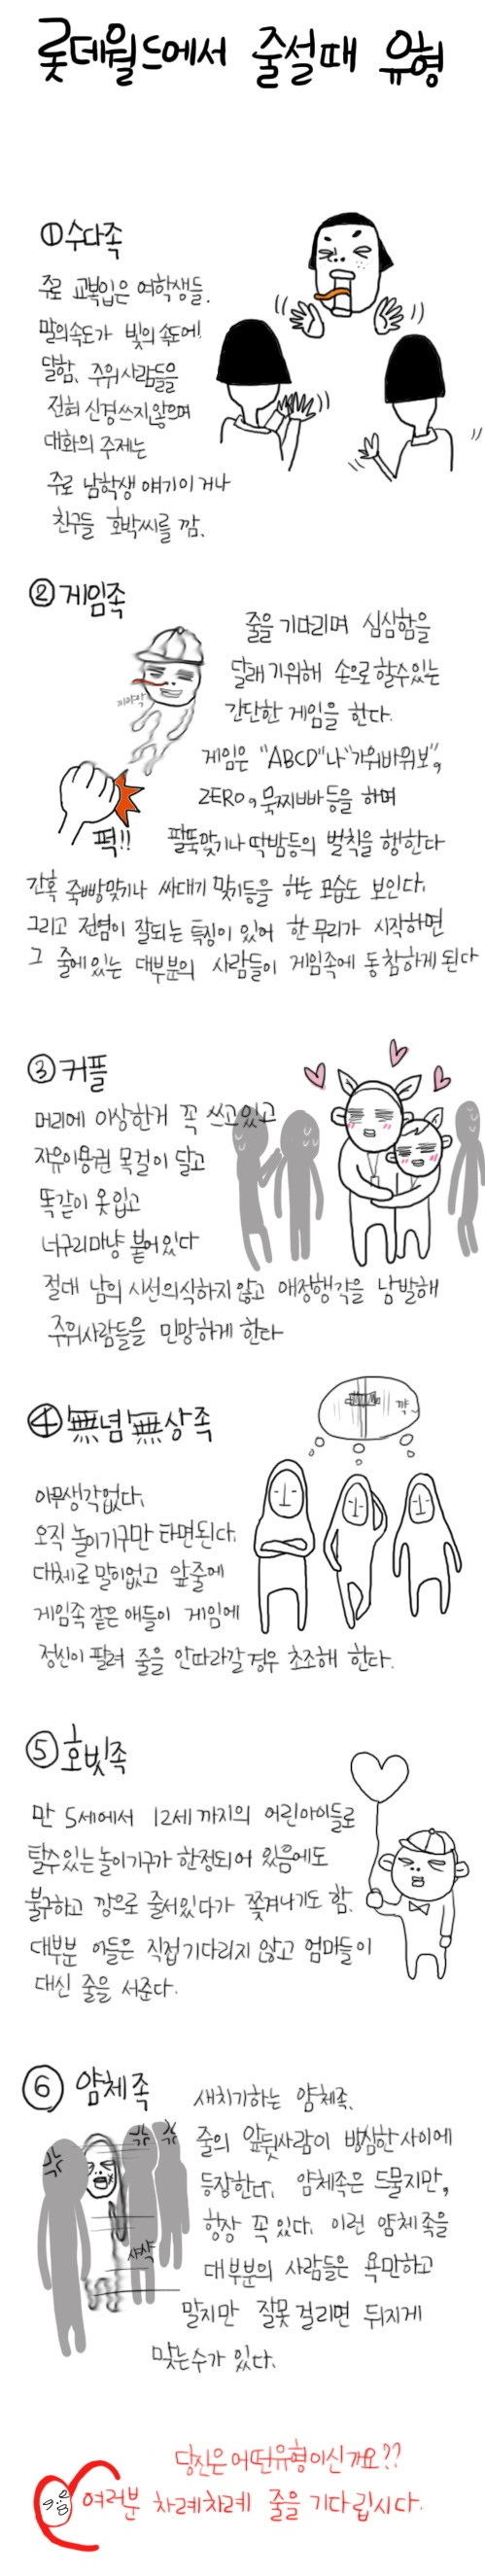 롯데월드에서 줄설때 유형
①수다족
주로 교복입은 여학생들.
말의속도가 빛의속도에
달함. 주위사람들을
전혀 신경쓰지않으며
대화의 주제는
주로 남학생 얘기이거나
친구들 호박씨를 깜.
②게임족
줄을 기다리며 심심함을
달래기위해 손으로 할수있는
간단한 게임을 한다.
게임은 "ABCD"나 "가위바위보",
ZERO, 묵찌빠등을 하며
퍽!! 팔뚝맞기나 딱밤등의 벌칙을 행한다
간혹 죽빵맞기나 싸대기 맞기등을 하는 모습도 보인다.
그리고 전염이 잘되는 특징이 있어 한무리가 시작하면
그 줄에있는 대부분의 사람들이 게임족에 동참하게 된다
③커플
머리에 이상한거 꼭 쓰고있고
자유이용권 목걸이 달고
똑같이 옷입고
너구리마냥 붙어있다
절대 남의 시선의식하지않고 애정행각을 남발해
주위사람들을 민망하게 한다
④無념無상족
꺅~
아무생각없다.
오직 놀이기구만 타면된다.
대체로 말이없고 앞줄에
게임족같은 애들이 게임에
정신이 팔려 줄을 안따라갈경우 초조해 한다.
⑤호빗족
만 5세에서 12세까지의 어린아이들로
탈수있는놀이기구가 한정되어 있음에도
불구하고 깡으로 줄서있다가 쫓겨나기도 함.
대부분 아들은 직접기다리지 않고 엄마들이
대신 줄을 서준다.
⑥ 얌체족
새치기하는 얌체족.
줄의 앞뒷사람이 방심한사이에
등장한다. 얌체족은 드물지만,
샤샥
항상 꼭 있다. 이런 얌체족을
대부분의 사람들은 욕만하고
말지만 잘못 걸리면 뒤지게
맞는수가 있다.
당신은 어떤유형이신가요??
여러분 차례차례 줄을 기다립시다.